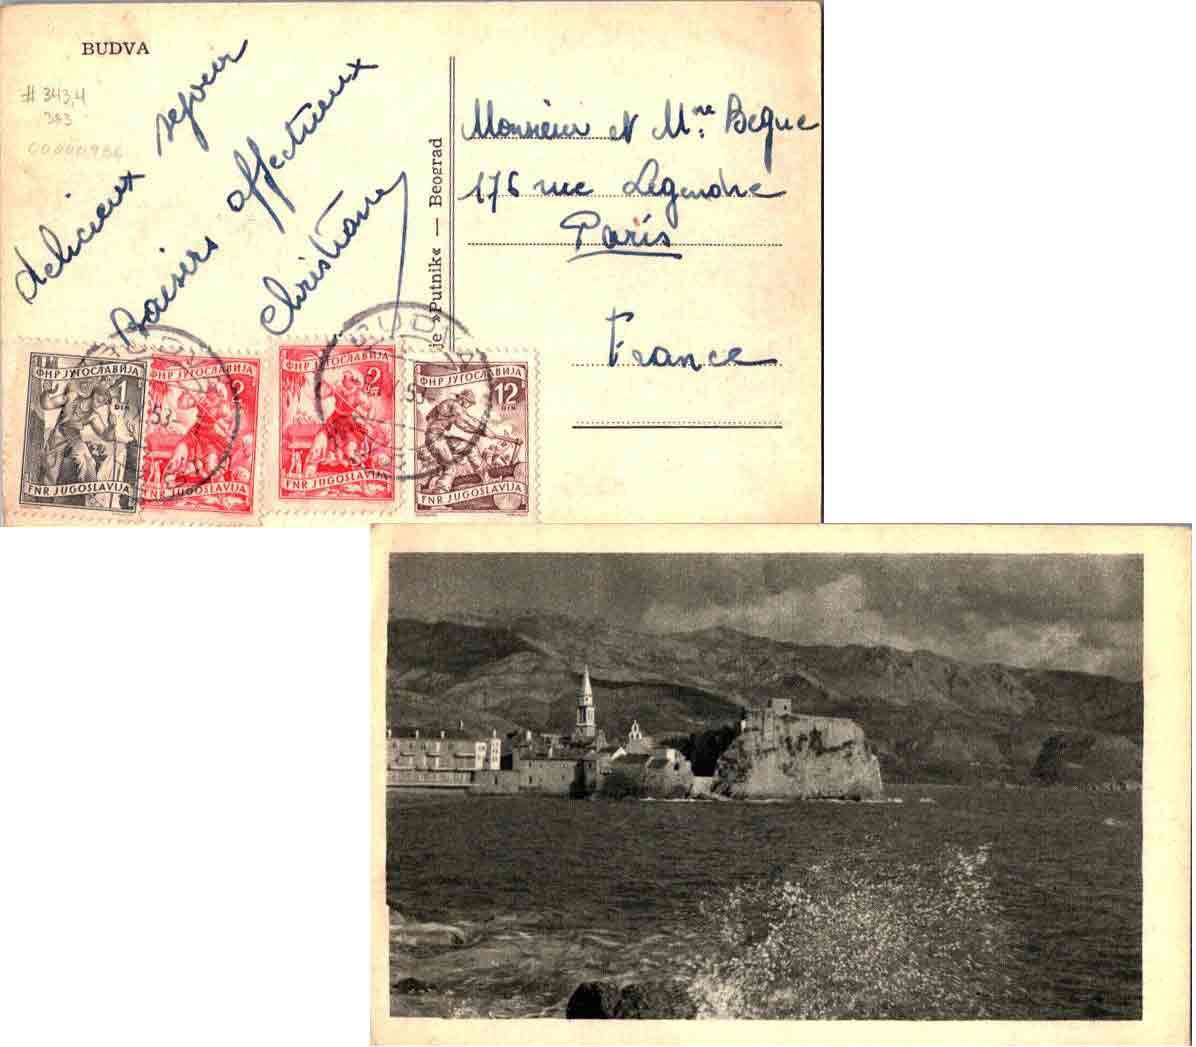 BUDVA
# 343,4
383
délicieux séjour
Baisers affectueux
Christiane
je »Putnik« — Beograd
Monsieur et Mme Beque
176 rue Legendre
Paris
France
ФНР ЈУГОСЛАВИЈА
1
DIN
FNR JUGOSLAVIJA
ФНР ЈУГОСЛАВИЈА
2
FNR JUGOSLAVIJA
ФНР ЈУГОСЛАВИЈА
2
FNR JUGOSLAVIJA
ФНР ЈУГОСЛАВИЈА
12
DIN
FNR JUGOSLAVIJA
53
53